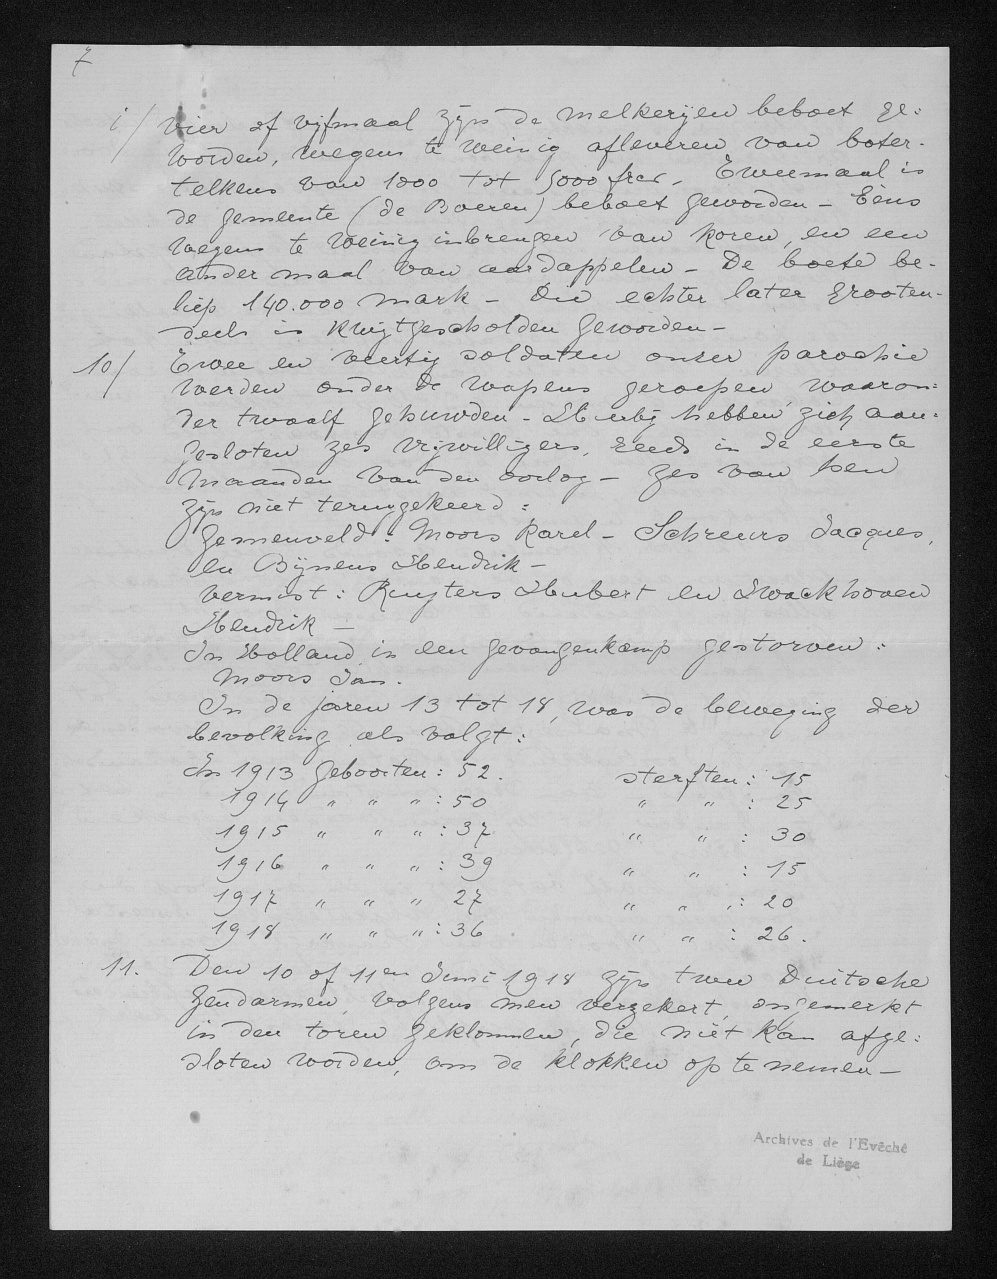 7
i/ vier of vijfmaal zijn de melkerijen beboet ge:
worden, wegens te weinig afleveren van boter.
telkens van 1000 tot 5000 frcs. Tweemaal is
de gemeente (de Boeren) beboet geworden – Eens
wegens te weinig inbrengen van koren, en een
ander maal van aardappelen – De boete be-
liep 140.000 mark – Die echter later grooten-
deels is kwijtgescholden geworden –
10/ Twee en veertig soldaten onzer parochie
werden onder de wapens geroepen waaron:
der twaalf gehuwden – Hierbij hebben zich aan:
gesloten zes vrijwilligers, reeds in de eerste
maanden van den oorlog – zes van hen
zijn niet teruggekeerd:
Gesneuveld: Moors Karel – Schreurs Jacques,
en Bijnens Hendrik –
vermist: Ruyters Hubert en Swackhoven
Hendrik –
In Holland in een gevangenkamp gestorven:
Moors Jan.
In de jaren 13 tot 18, was de beweging der
bevolking als volgt:
In 1913 geboorten: 52. sterften: 15
1914 " " " : 50 " " : 25
1915 " " " : 37 " " : 30
1916 " " " : 39 " " : 15
1917 " " " 27 " " : 20
1918 " " " : 36 " " : 26.
11. Den 10 of 11en Juni 1918 zijn twee Duitsche
gendarmen, volgens men verzekert, ongemerkt
in den toren geklommen, die niet kan afge:
sloten worden, om de klokken op te nemen –
Archives de l'Evêché
de Liège